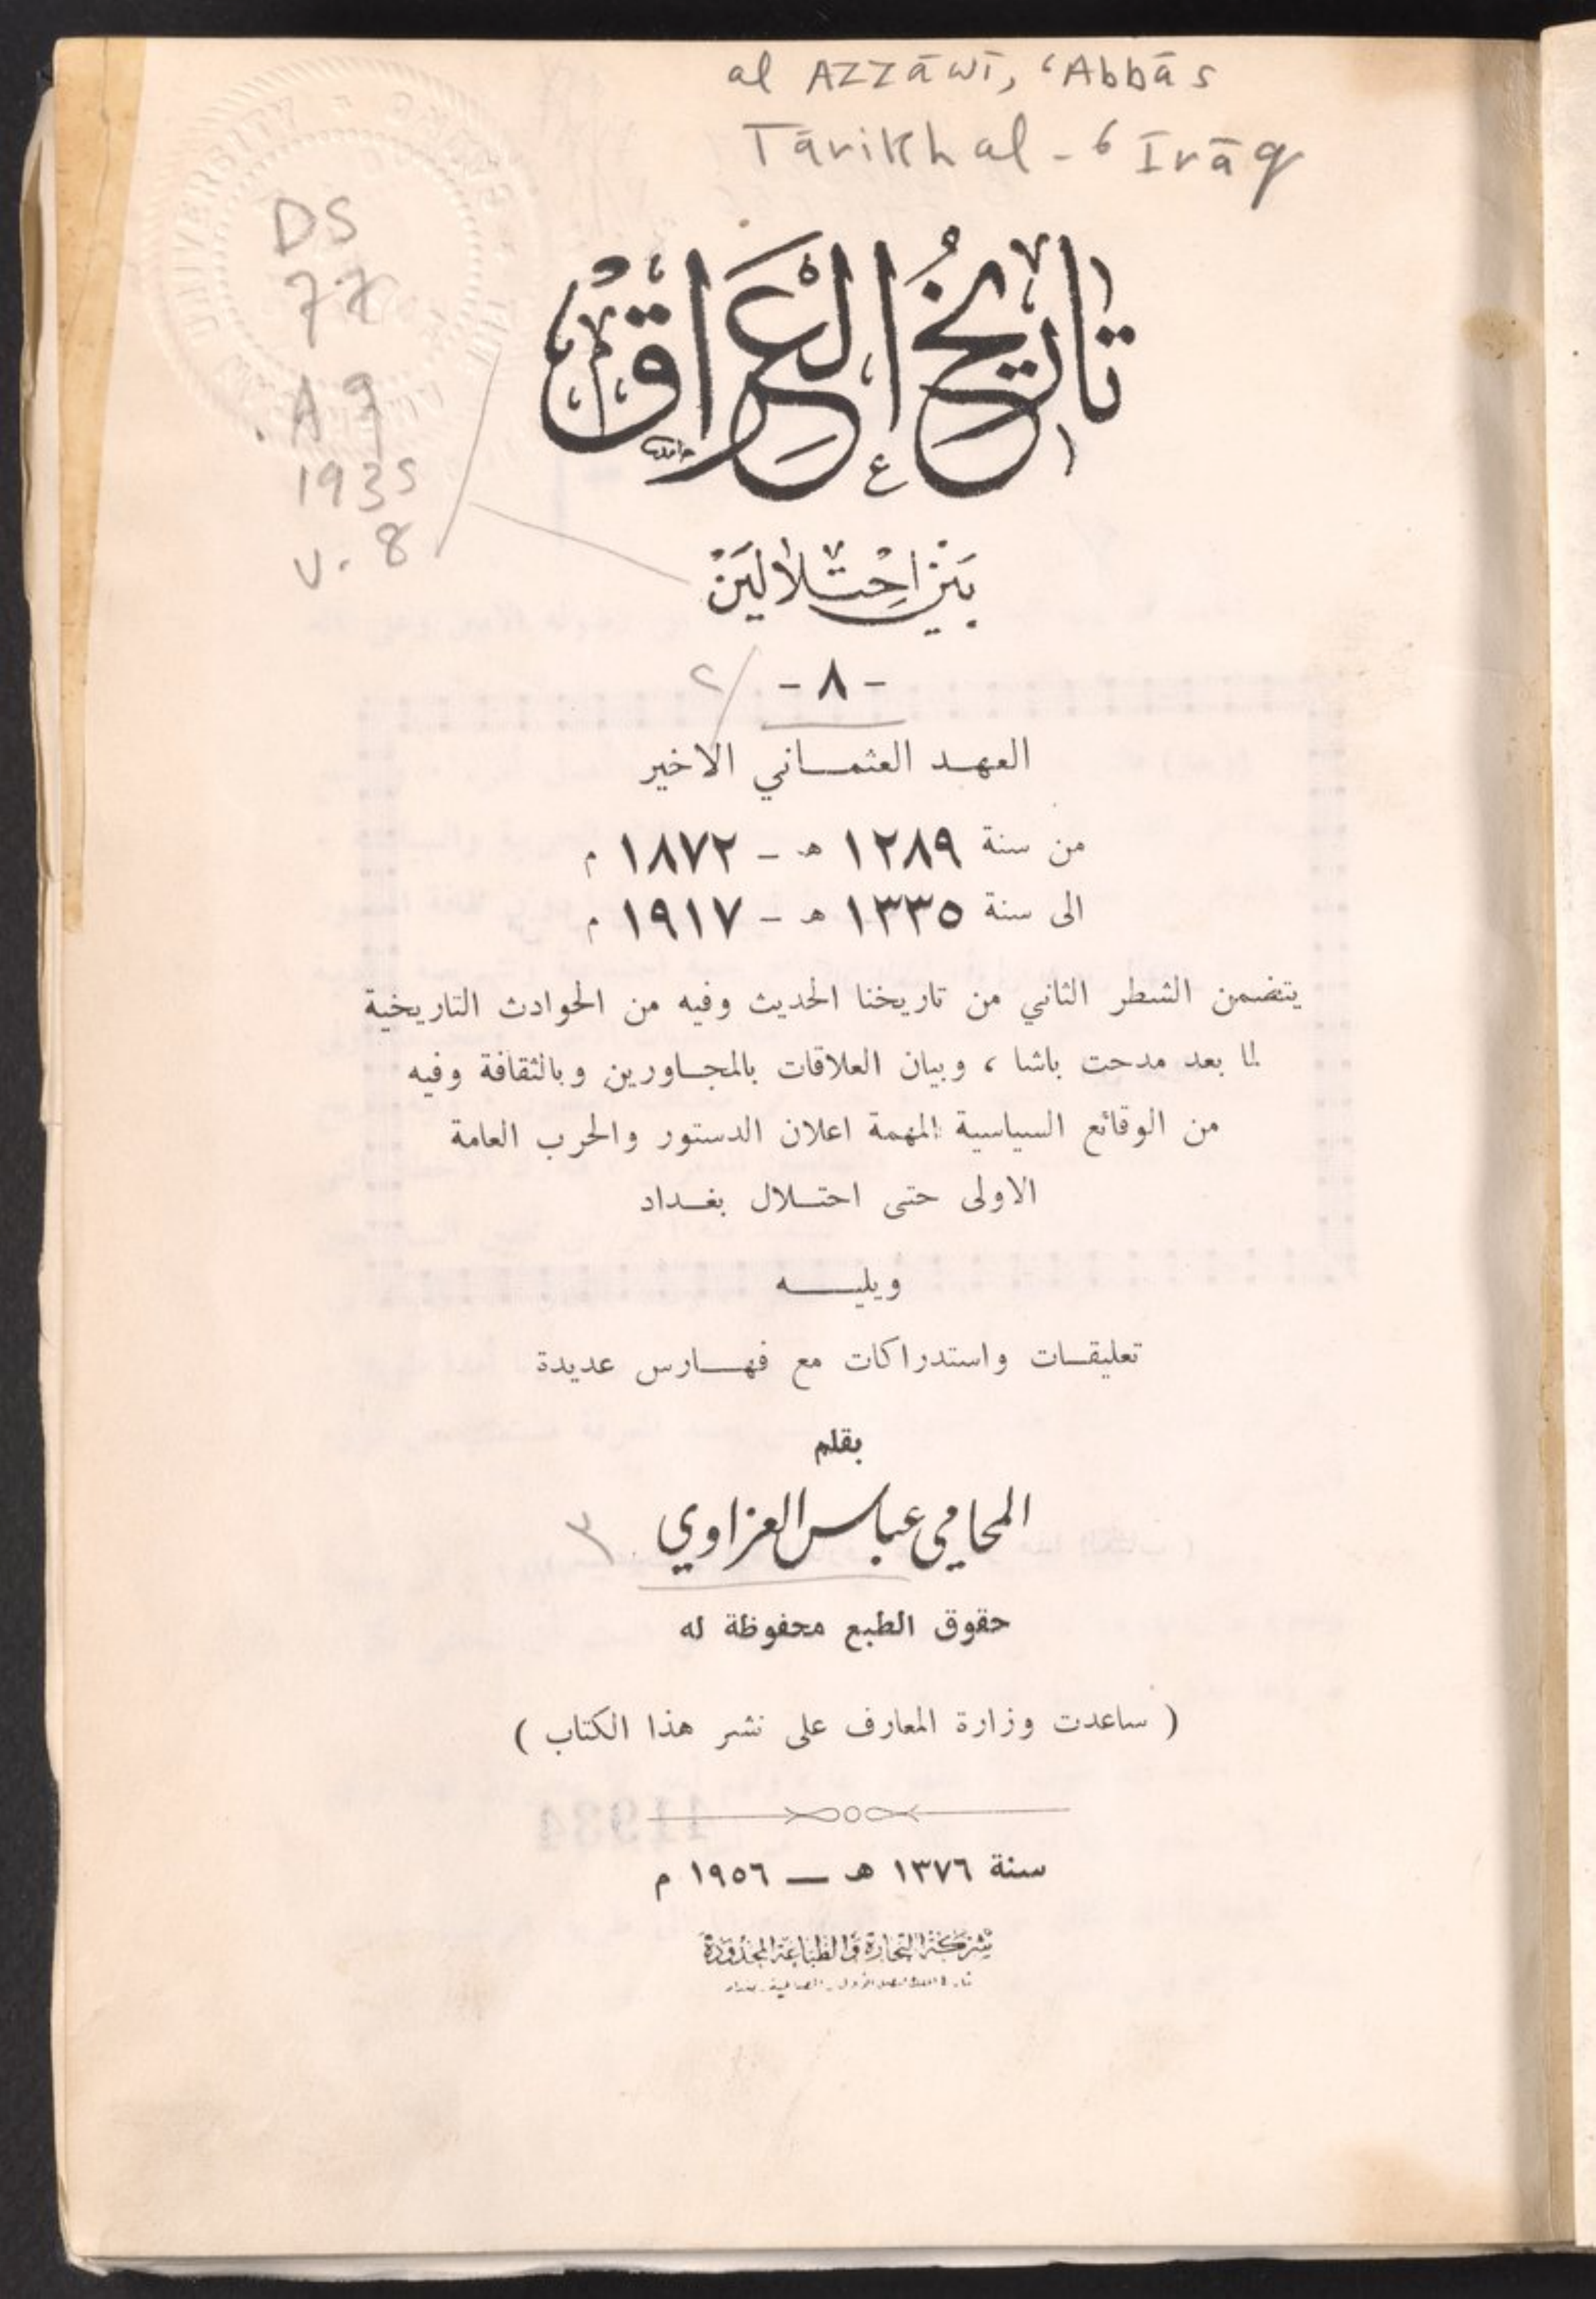 al Azzāwī, ʿAbbās
Tārikh al-ʿIrāq
DS
77
.A9
1935
v.8
تاريخ العراق
بين احتلالين
- ٨ -
٢
العهد العثماني الاخير
من سنة ١٢٨٩ هـ - ١٨٧٢ م
الى سنة ١٣٣٥ هـ - ١٩١٧ م
يتضمن الشطر الثاني من تاريخنا الحديث وفيه من الحوادث التاريخية
لما بعد مدحت باشا ، وبيان العلاقات بالمجاورين وبالثقافة وفيه
من الوقائع السياسية المهمة اعلان الدستور والحرب العامة
الاولى حتى احتلال بغداد
ويليه
تعليقات واستدراكات مع فهارس عديدة
بقلم
المحامي عباس العزاوي
٣
حقوق الطبع محفوظة له
( ساعدت وزارة المعارف على نشر هذا الكتاب )
سنة ١٣٧٦ هـ — ١٩٥٦ م
شركة التجارة والطباعة المحدودة